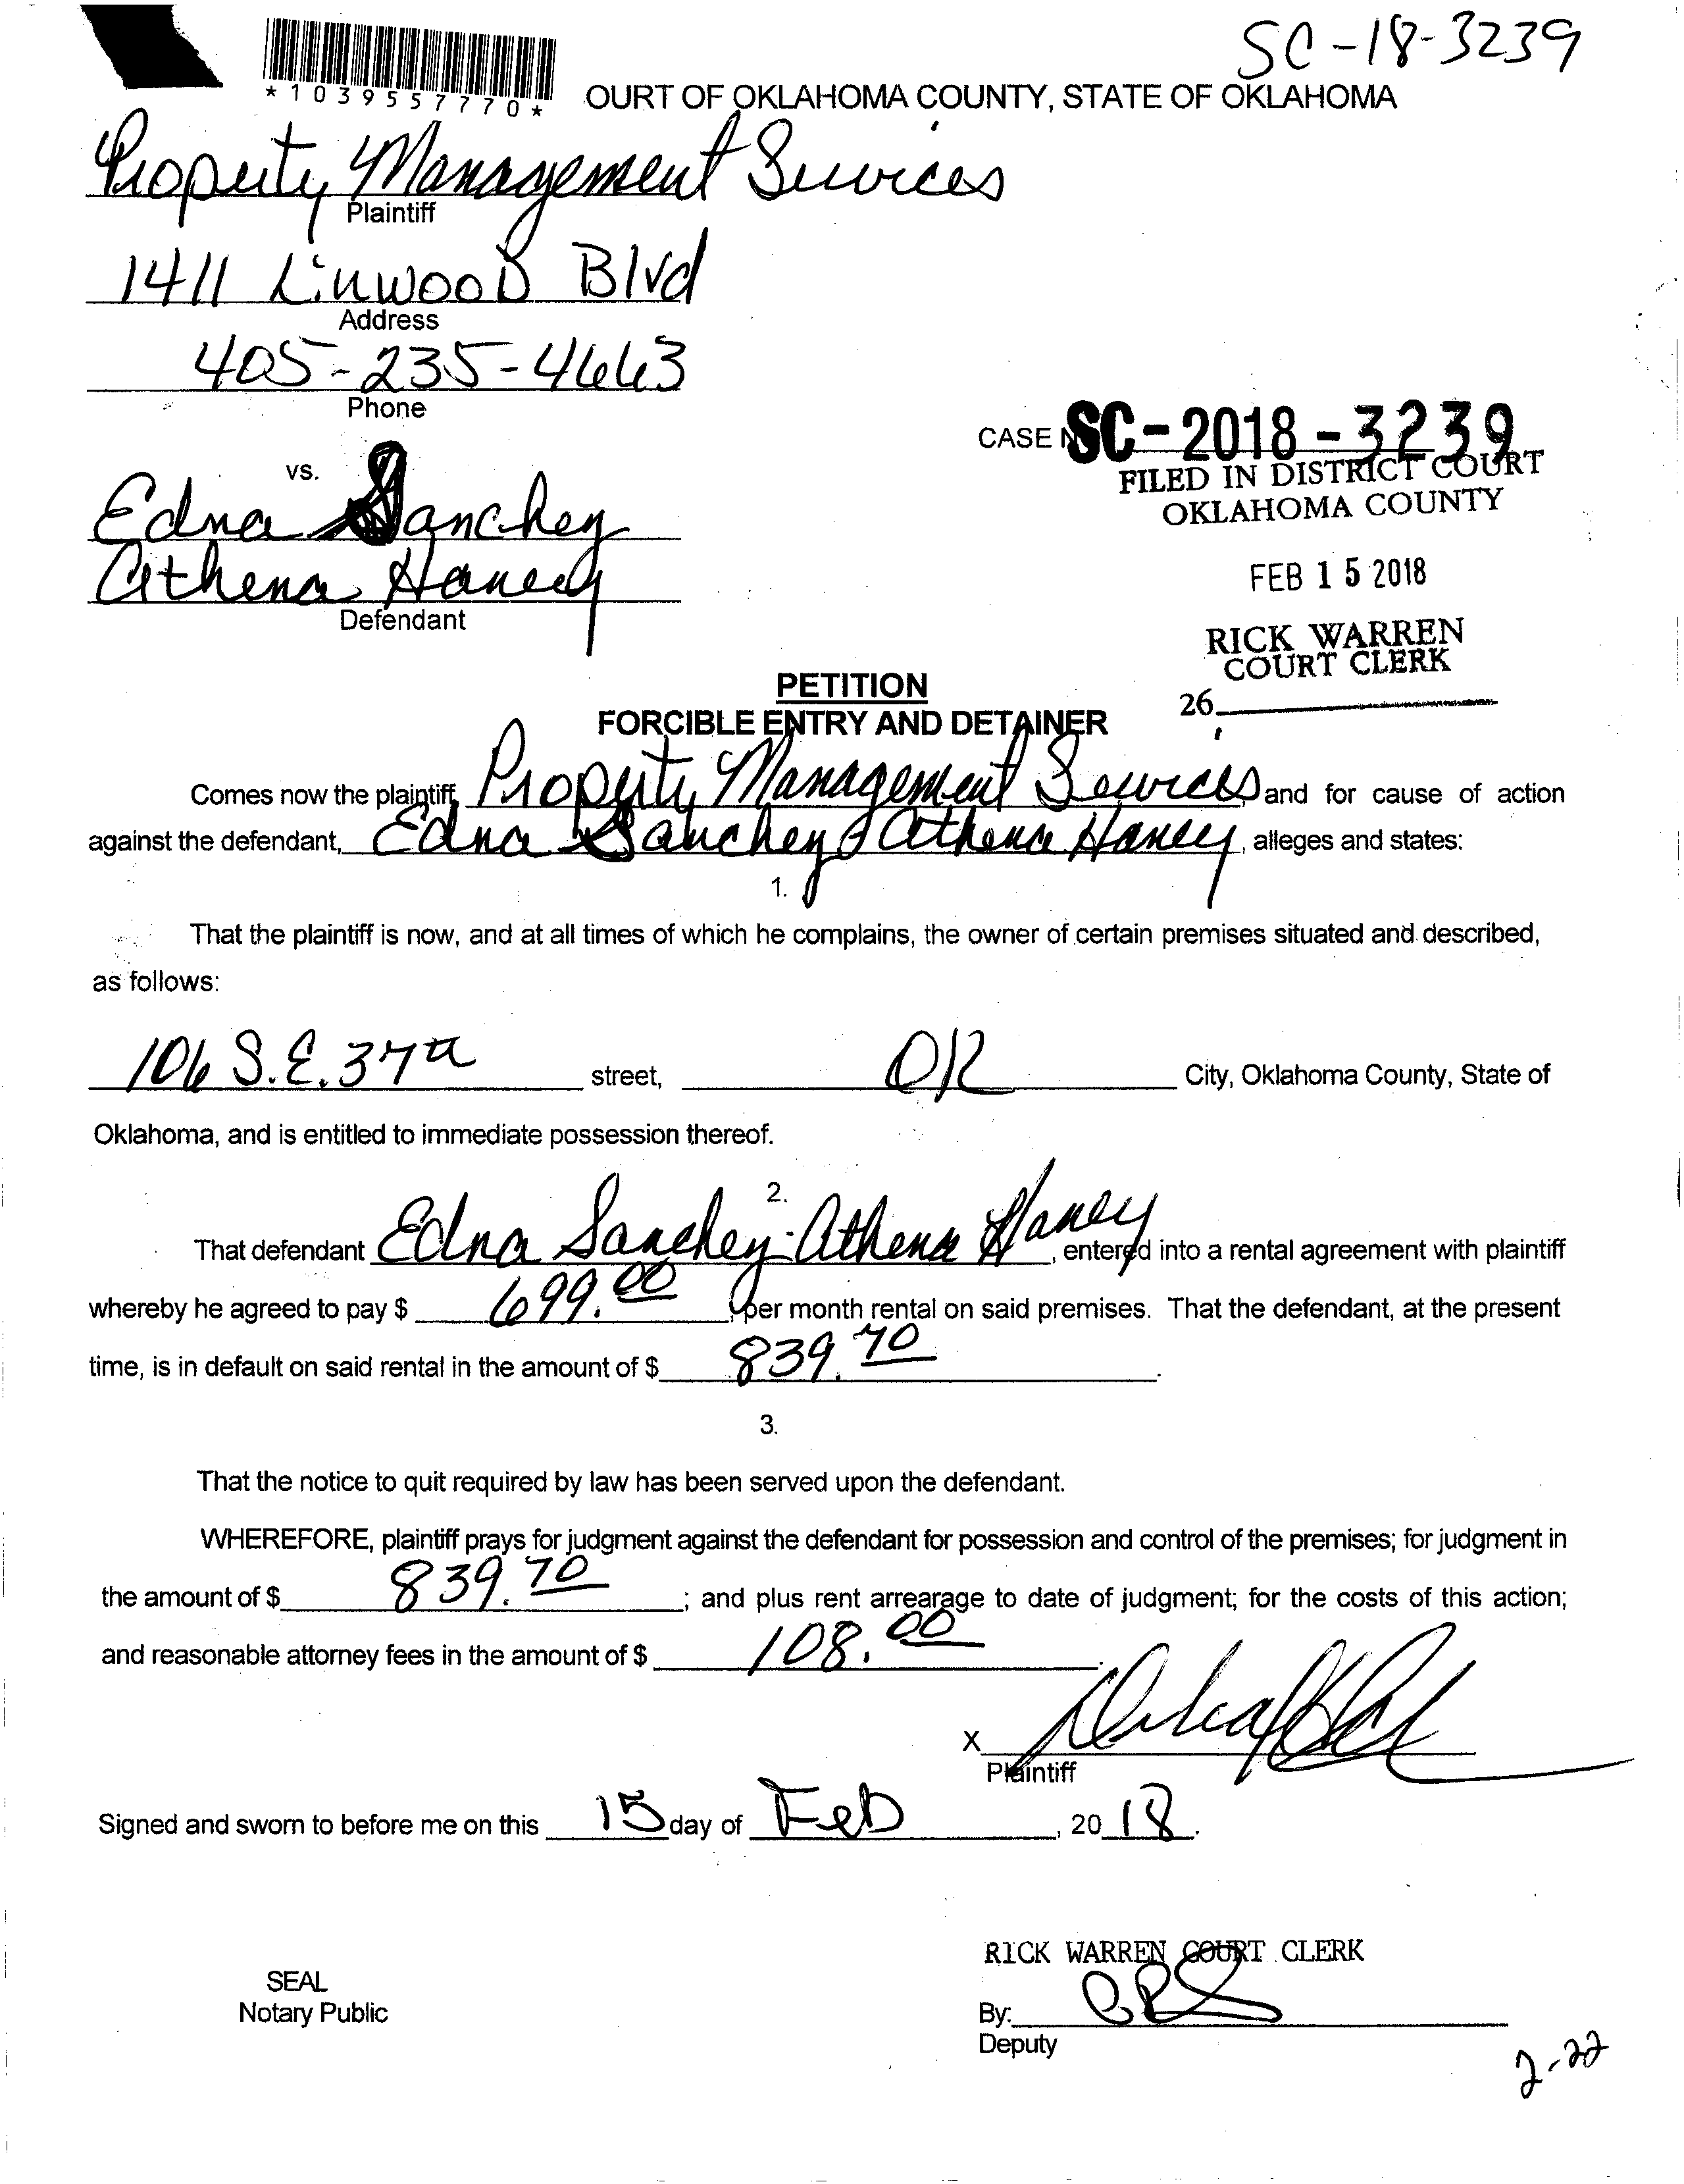 SC-18-3239
*1039557770*
OURT OF OKLAHOMA COUNTY, STATE OF OKLAHOMA
Property Management Services
Plaintiff
1411 Linwood Blvd
Address
405-235-4663
Phone
CASE N SC-2018-3239
FILED IN DISTRICT COURT
OKLAHOMA COUNTY
FEB 15 2018
RICK WARREN
COURT CLERK
26
vs.
Edna Sanchez
Athena Haney
Defendant
PETITION
FORCIBLE ENTRY AND DETAINER
Comes now the plaintiff, Property Management Services and for cause of action
against the defendant, Edna Sanchez & Athena Haney, alleges and states:
1.
That the plaintiff is now, and at all times of which he complains, the owner of certain premises situated and described,
as follows:
106 S.E. 37th street, OK City, Oklahoma County, State of
Oklahoma, and is entitled to immediate possession thereof.
2.
That defendant Edna Sanchez - Athena Haney, entered into a rental agreement with plaintiff
whereby he agreed to pay $ 699.00, per month rental on said premises. That the defendant, at the present
time, is in default on said rental in the amount of $ 839.70.
3.
That the notice to quit required by law has been served upon the defendant.
WHEREFORE, plaintiff prays for judgment against the defendant for possession and control of the premises; for judgment in
the amount of $ 839.70; and plus rent arrearage to date of judgment; for the costs of this action;
and reasonable attorney fees in the amount of $ 108.00.
X
Plaintiff
Signed and sworn to before me on this 15 day of Feb, 2018.
RICK WARREN COURT CLERK
SEAL
Notary Public
By:
Deputy
2-22